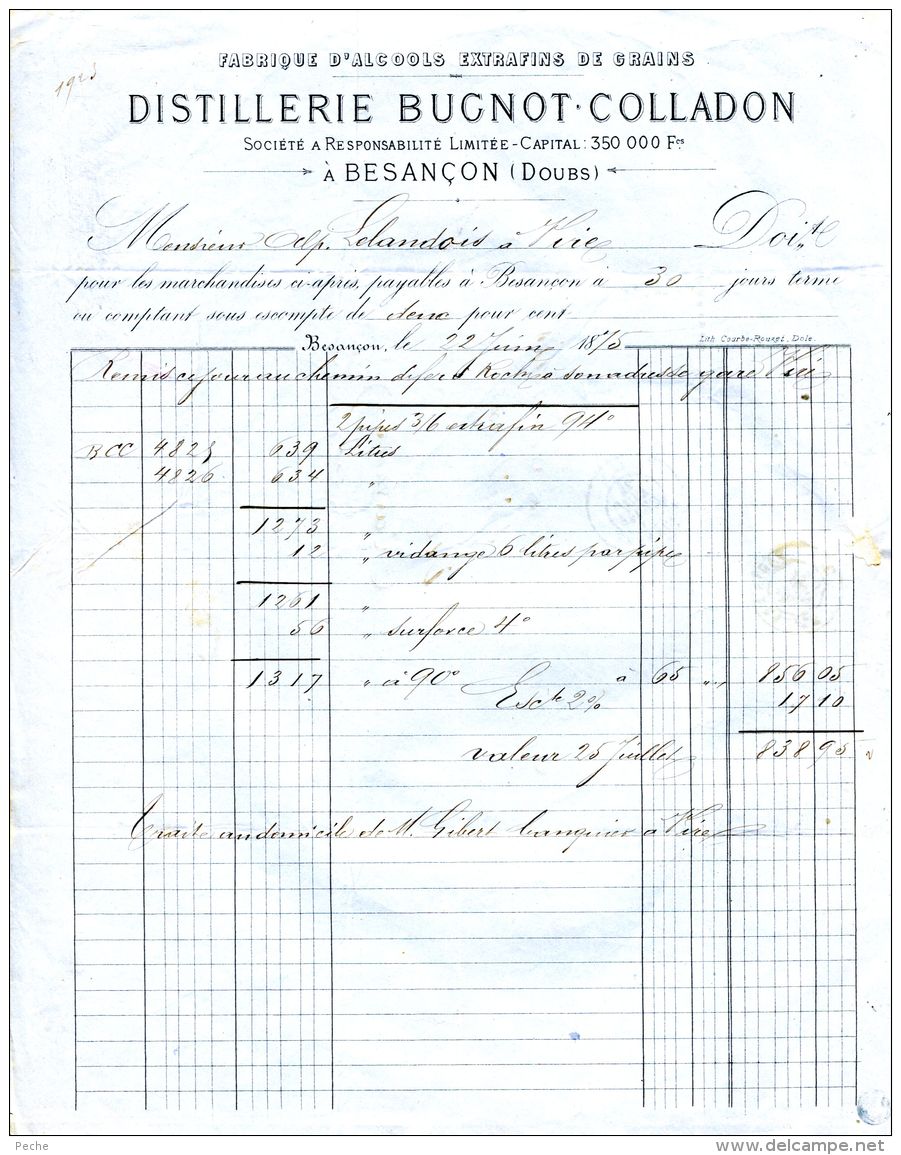 1923
FABRIQUE D'ALCOOLS EXTRAFINS DE GRAINS
DISTILLERIE BUGNOT-COLLADON
SOCIÉTÉ A RESPONSABILITÉ LIMITÉE - CAPITAL: 350 000 Fcs
À BESANÇON (DOUBS)
Monsieur Alp. Lelandois à Vire Doit
pour les marchandises ci-après, payables à Besançon à 30 jours terme
ou comptant sous escompte de deux pour cent
Besançon, le 22 Juin 1875
Lith. Courbe-Rouzet, Dole.
Remis ce jour au chemin de fer à son adresse gare Vire
2 pipes 3/6 extrafin 94°
BCC 4825 639 Litres
4826 634 "
1273 "
12 " vidange 6 litres par pipe
1261 "
56 " surforce 4°
1317 " à 90° à 65 " " 856 05
Escte 2% 17 10
valeur 25 Juillet 838 95
Traite au domicile de M. Gibert banquier à Vire
Peche
www.delcampe.net